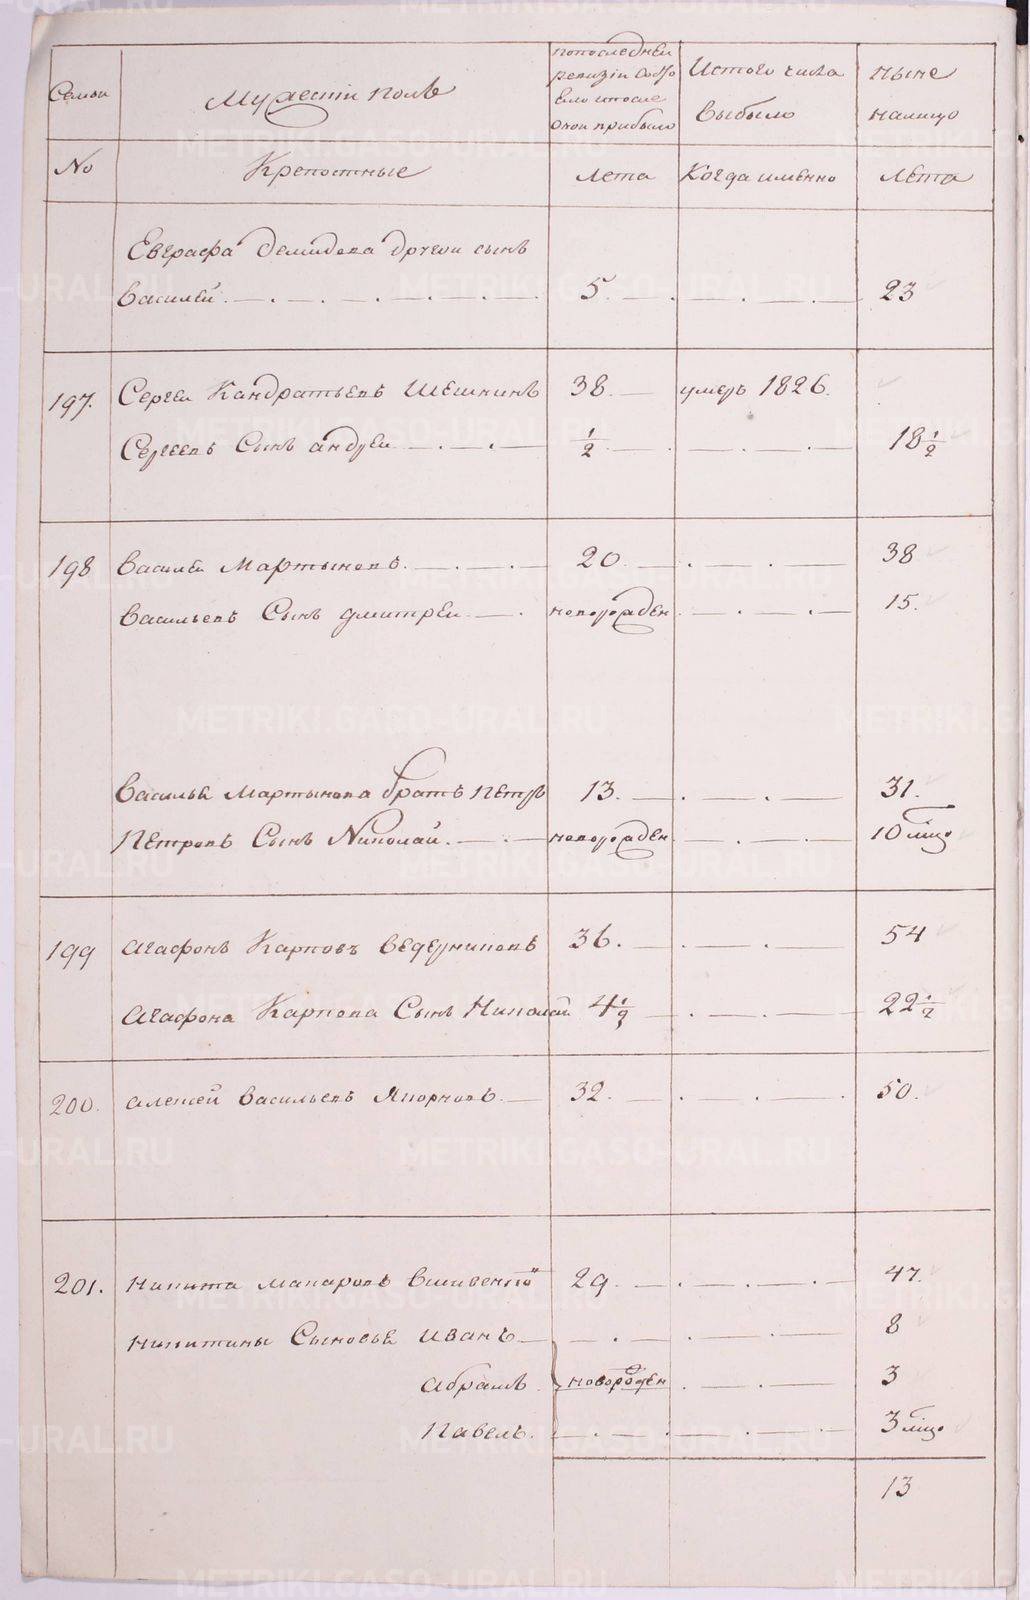 Семьи
Мужескiй полъ
по последней
ревизiи состо
яло и после
оной прибыло
Из того числа
выбыло
ныне
на лицо
No
Крепостные
Лета
Когда именно
Лета
Евграфа Демидова другой сынъ
Василей 5 23
197. Сергей Кандратьевъ Шешкинъ 38 умеръ 1826.
Сергеевъ Сынъ андрей 1/2 18 1/2
198 Василей Мартыновъ 20 38
Васильевъ Сынъ дмитрей новорожден 15.
Василья Мартынова братъ Петръ 13. 31.
Петровъ Сынъ Николай. новорожден 10 мцо
199 Агафонъ Карповъ Ведерниковъ 36. 54
Агафона Карпова Сынъ Николай 4 1/2 22 1/2
200. алексей Васильевъ Япорновъ 32. 50.
201. Никита Макаровъ 29. 47.
Никитины Сыновья Иванъ 8
Абрамъ новорожден 3
Павелъ. 3 мцо
13
METRIKI.GASO-URAL.RU